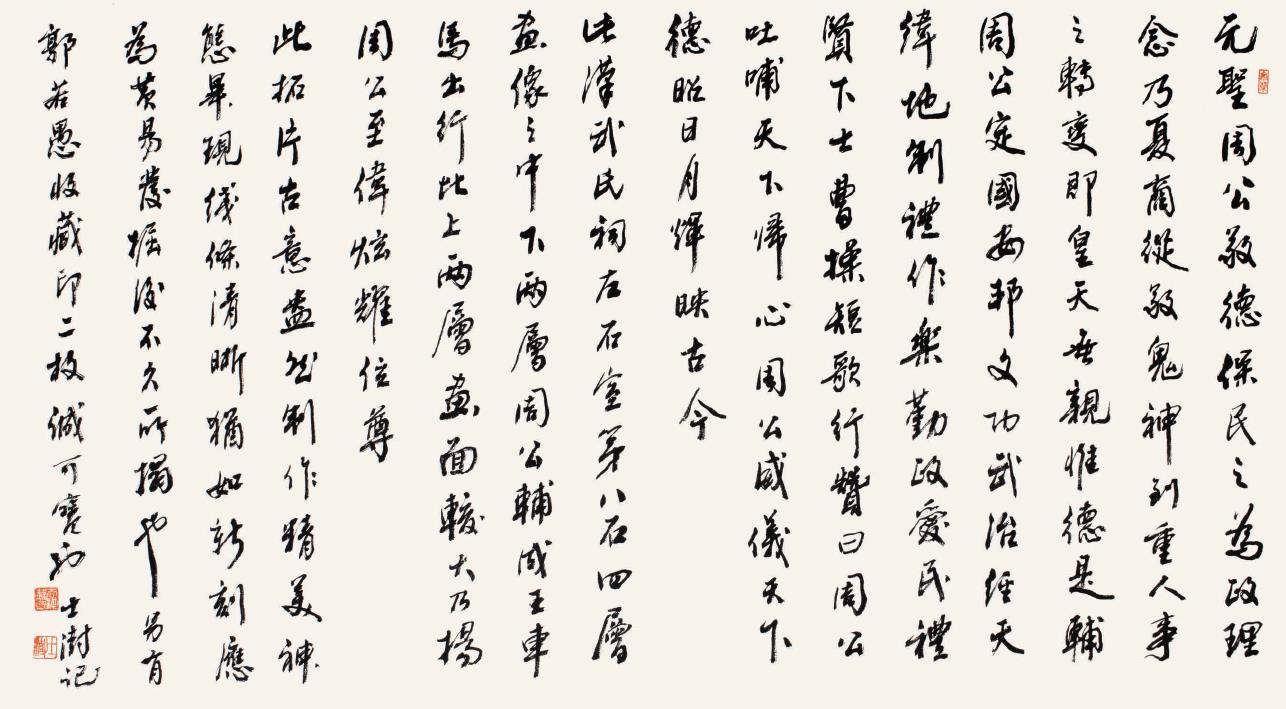 元聖周公敬德保民之為政理
念乃夏商從敬鬼神到重人事
之轉變即皇天無親惟德是輔
周公定國安邦文功武治經天
緯地制禮作樂勤政愛民禮
賢下士曹操短歌行贊曰周公
吐哺天下歸心周公威儀天下
德昭日月輝映古今
此漢武氏祠左石室第八石四層
畫像之中下兩層周公輔成王車
馬出行比上兩層畫面較大乃揚
周公至偉炫耀位尊
此拓片古意盎然制作精美神
態畢現綫條清晰猶如新刻應
為黃易發掘後不久所搨也另有
郭若愚收藏印二枚誠可寶也 士澍記